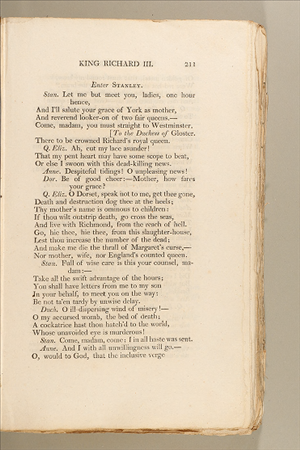 KING RICHARD III. 211
Enter STANLEY.
Stan. Let me but meet you, ladies, one hour
hence,
And I'll salute your grace of York as mother,
And reverend looker-on of two fair queens.—
Come, madam, you must straight to Westminster,
[To the Duchess of Gloster.
There to be crowned Richard's royal queen.
Q. Eliz. Ah, cut my lace asunder!
That my pent heart may have some scope to beat,
Or else I swoon with this dead-killing news.
Anne. Despiteful tidings! O unpleasing news!
Dor. Be of good cheer:—Mother, how fares
your grace?
Q. Eliz. O Dorset, speak not to me, get thee gone,
Death and destruction dog thee at the heels;
Thy mother's name is ominous to children:
If thou wilt outstrip death, go cross the seas,
And live with Richmond, from the reach of hell.
Go, hie thee, hie thee, from this slaughter-house,
Lest thou increase the number of the dead;
And make me die the thrall of Margaret's curse,—
Nor mother, wife, nor England's counted queen.
Stan. Full of wise care is this your counsel, ma-
dam:—
Take all the swift advantage of the hours;
You shall have letters from me to my son
In your behalf, to meet you on the way:
Be not ta'en tardy by unwise delay.
Duch. O ill-dispersing wind of misery!—
O my accursed womb, the bed of death;
A cockatrice hast thou hatch'd to the world,
Whose unavoided eye is murderous!
Stan. Come, madam, come; I in all haste was sent.
Anne. And I with all unwillingness will go.—
O, would to God, that the inclusive verge